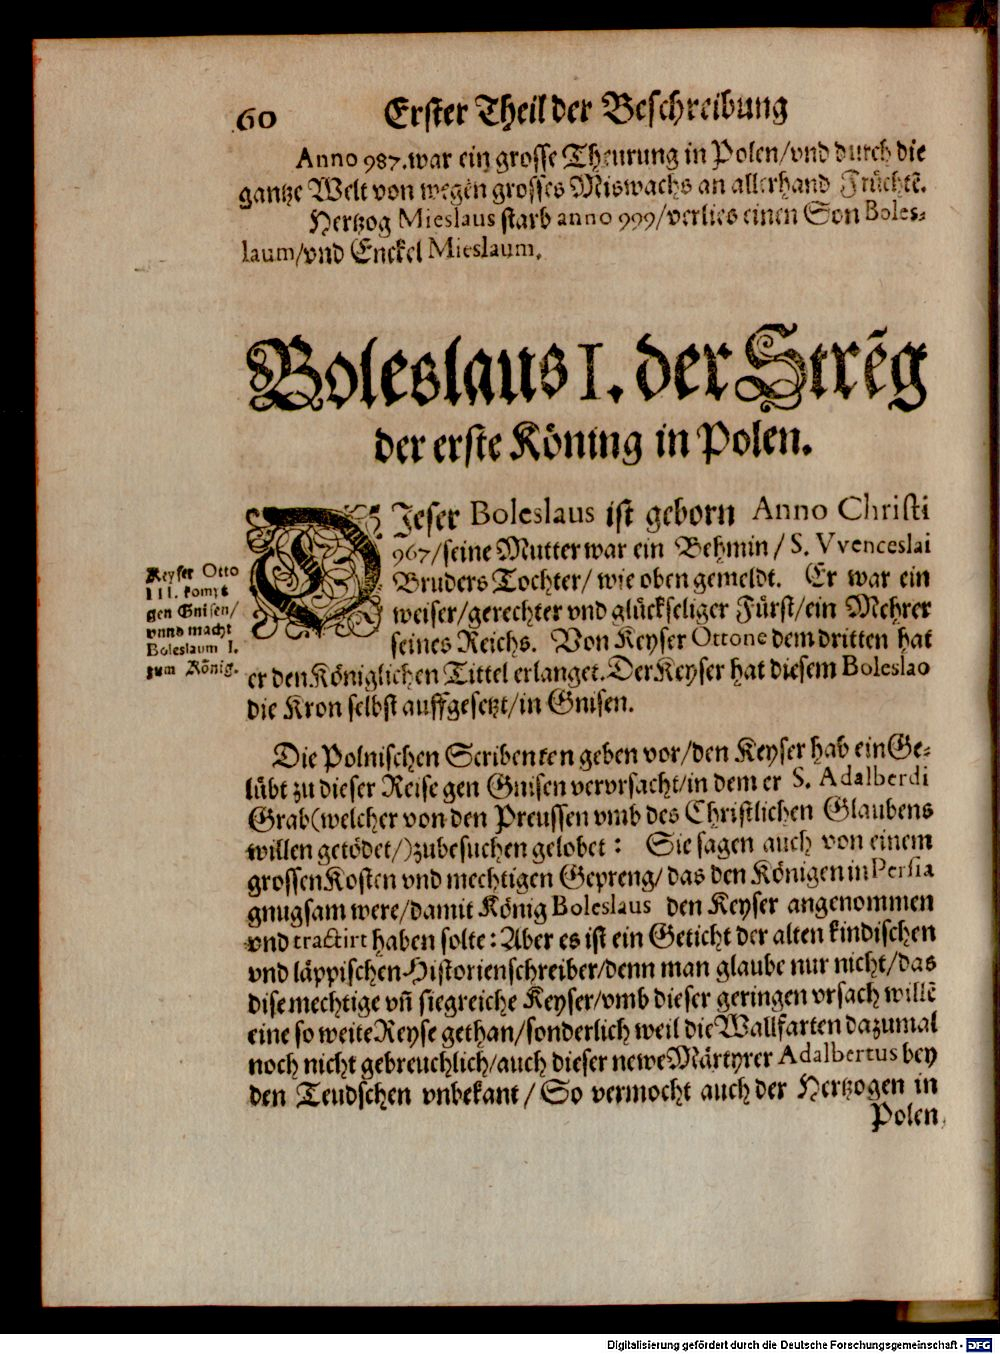 60 Erster Theil der Beschreibung
Anno 987. war ein grosse Theurung in Polen/vnd durch die
gantze Welt von wegen grosses Miswachs an allerhand Früchtē.
Hertzog Mieslaus starb anno 999/verlies einen Son Boles-
laum/vnd Enckel Mieslaum.
Boleslaus I. der Strēg
der erste Köning in Polen.
DJeser Boleslaus ist geborn Anno Christi
967/seine Mutter war ein Behmin / S. Vvenceslai
Bruders Tochter/ wie oben gemeldt. Er war ein
weiser/gerechter vnd glückseliger Fürst/ein Mehrer
seines Reichs. Von Keyser Ottone dem dritten hat
er den Königlichen Tittel erlanget. Der Keyser hat diesem Boleslao
die Kron selbst auffgesetzt/in Gnisen.
Keyser Otto
III. kompt
gen Gnisen/
vnnd macht
Boleslaum I.
zum König.
Die Polnischen Scribenten geben vor/den Keyser hab ein Ge-
lübt zu dieser Reise gen Gnisen vervrsacht/in dem er S. Adalberdi
Grab(welcher von den Preussen vmb des Christlichen Glaubens
willen getödet/)zubesuchen gelobet: Sie sagen auch von einem
grossen Kosten vnd mechtigen Gepreng/das den Königen in Persia
gnugsam were/damit König Boleslaus den Keyser angenommen
vnd tractirt haben solte: Aber es ist ein Geticht der alten kindischen
vnd läppischen Historienschreiber/denn man glaube nur nicht/das
dise mechtige vn̄ siegreiche Keyser/vmb dieser geringen vrsach willē
eine so weite Reyse gethan/sonderlich weil die Wallfarten dazumal
noch nicht gebreuchlich/auch dieser newe Märtyrer Adalbertus bey
den Teudschen vnbekant / So vermocht auch der Hertzogen in
Polen
Digitalisierung gefördert durch die Deutsche Forschungsgemeinschaft - DFG